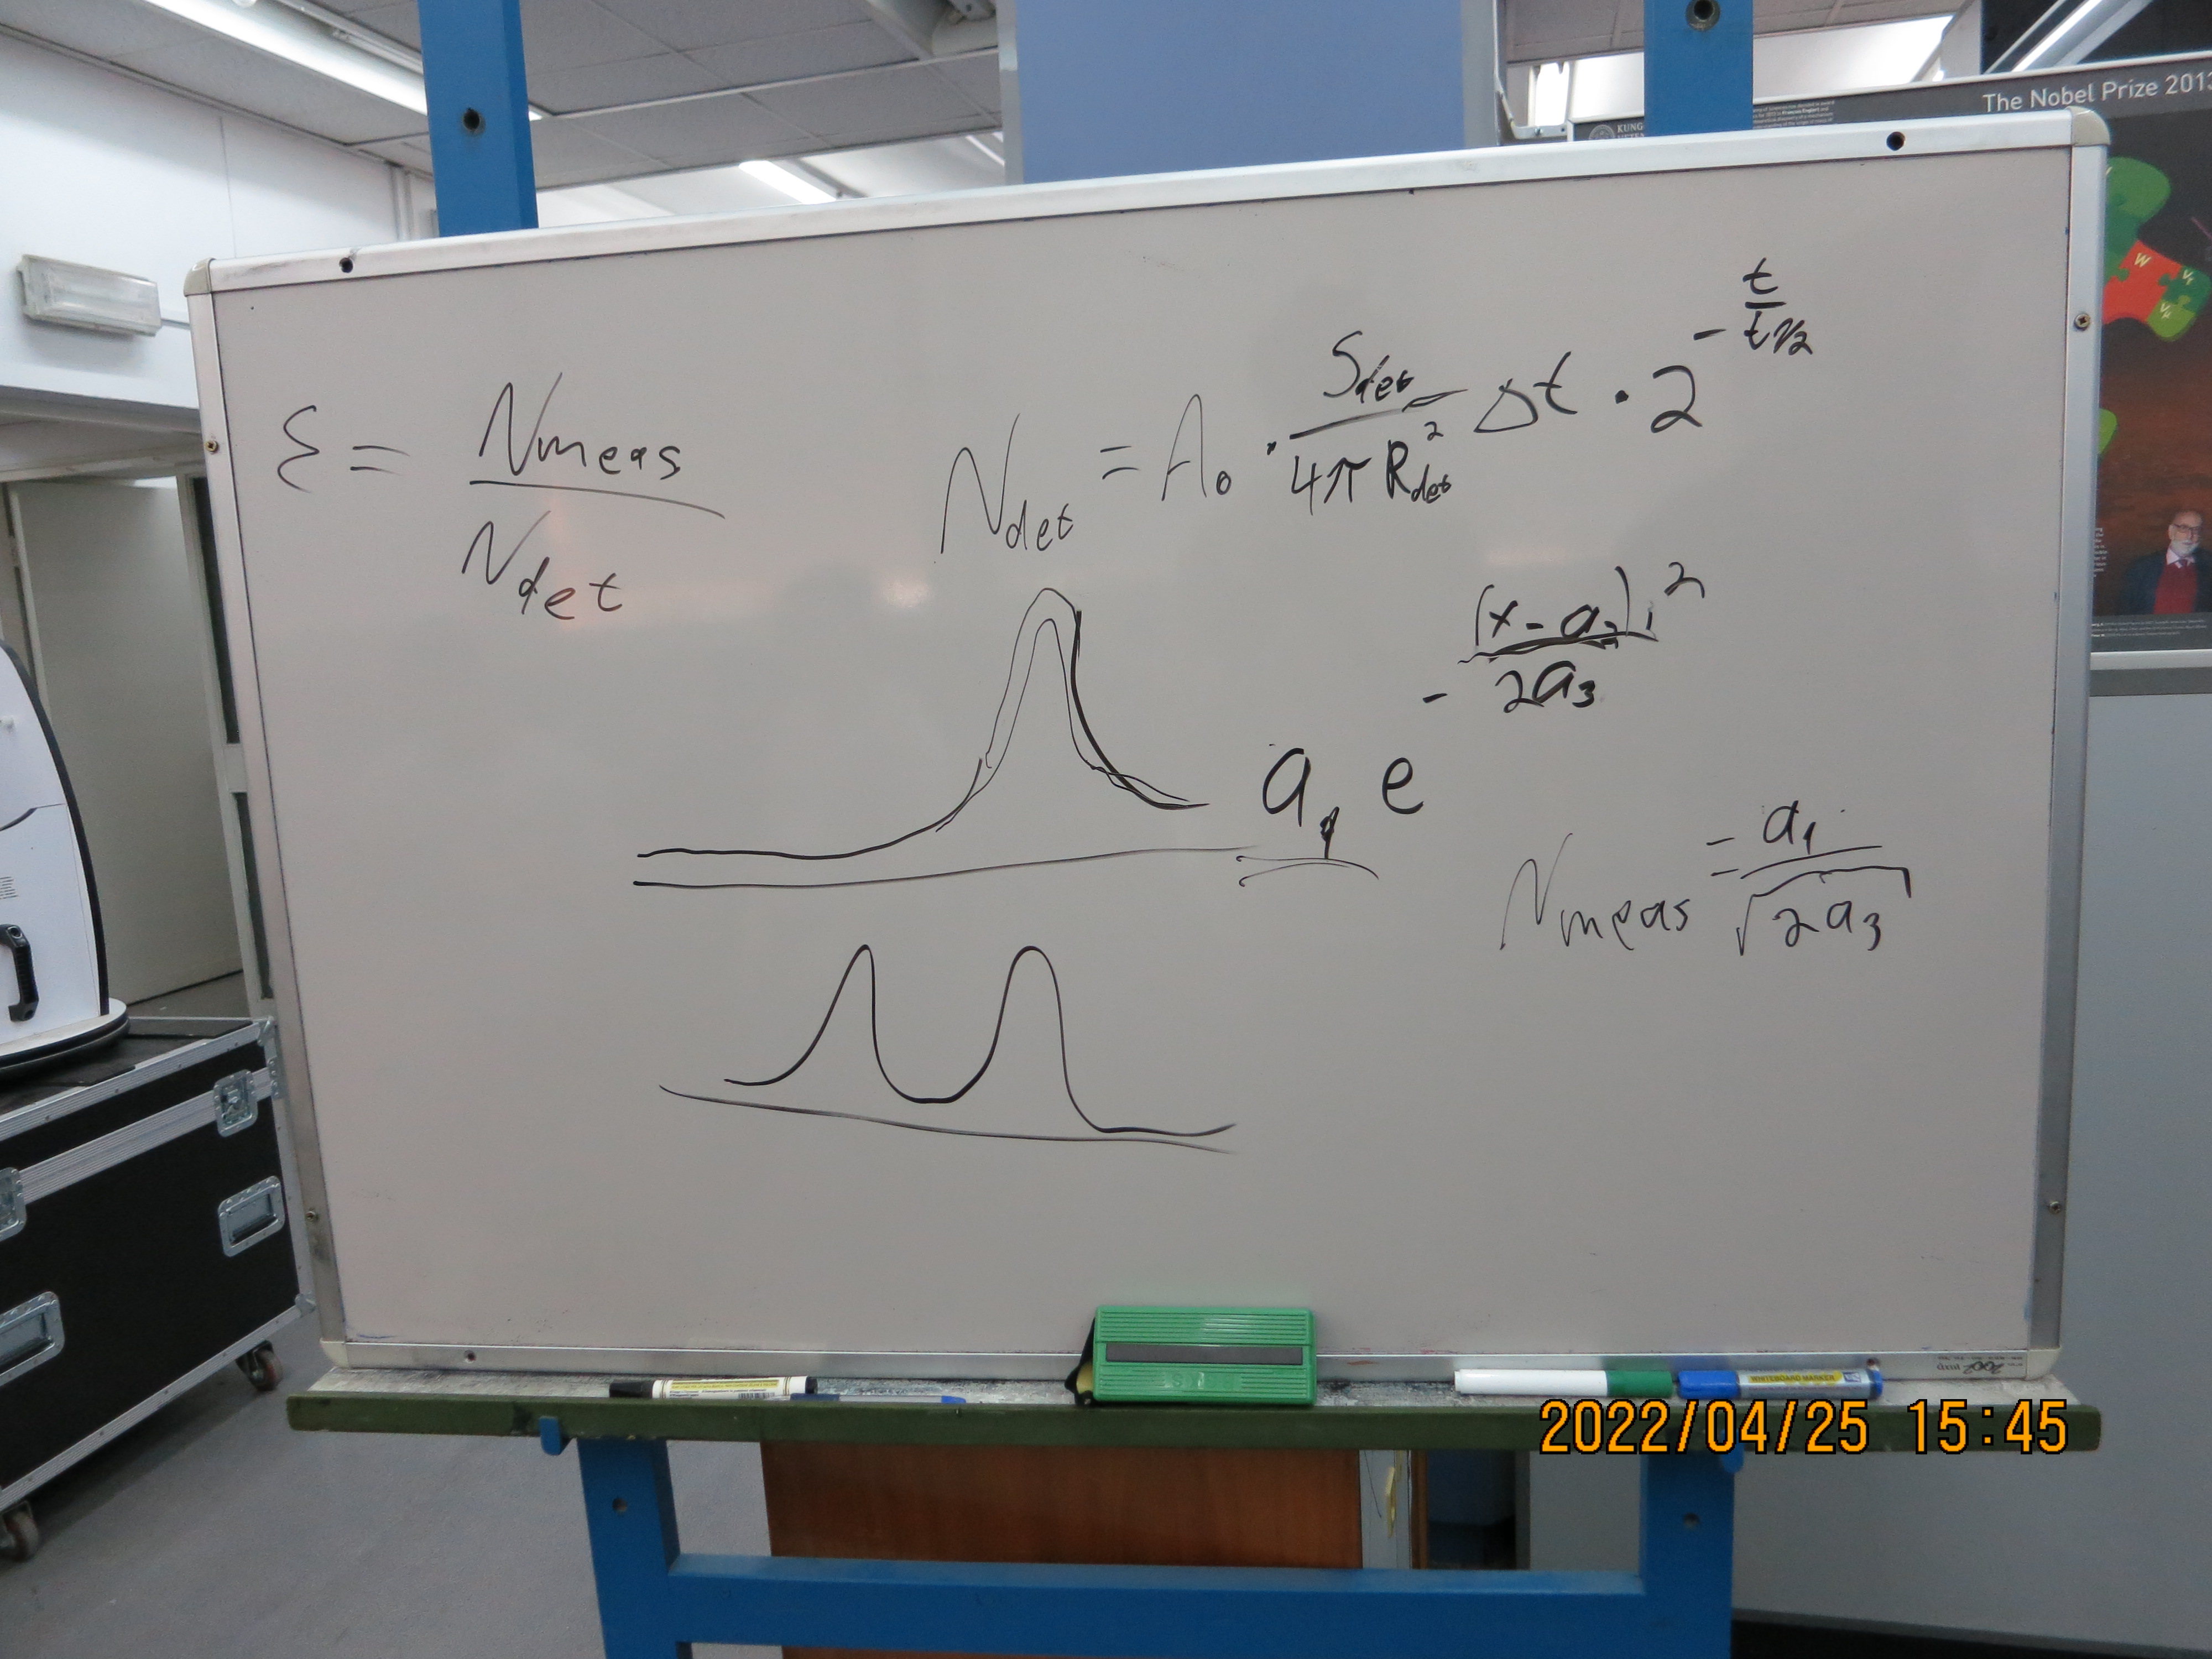 The Nobel Prize 2013
KUNG
W
ε = Nmeas / Ndet
Ndet = A₀ · Sdet / 4π R²det Δt · 2^(- t / t1/2)
a₁ e^(- (x - a₂)² / 2a₃)
Nmeas = a₁ / √2a₃
WHITEBOARD MARKER
2022/04/25 15:45